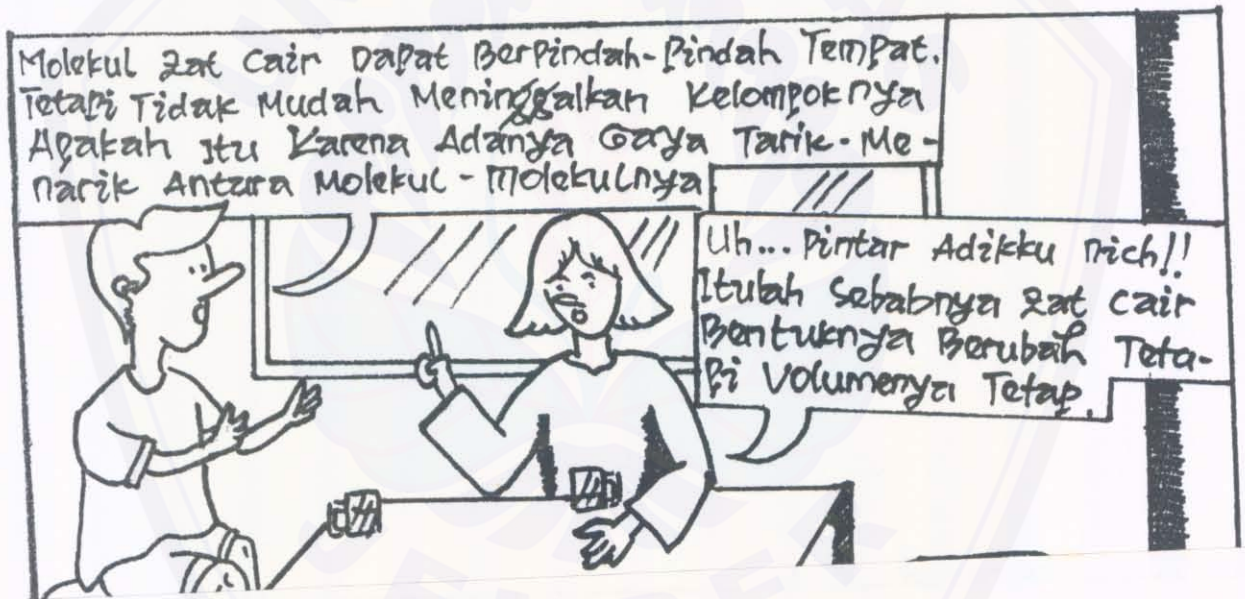 Molekul zat cair Dapat Berpindah-Pindah Tempat.
Tetapi Tidak Mudah Meninggalkan Kelompoknya
Apakah Itu Karena Adanya Gaya Tarik-Me-
narik Antara Molekul-Molekulnya
Uh... Pintar Adikku nich!!
Itulah Sebabnya zat cair
Bentuknya Berubah Teta-
Pi Volumenya Tetap.